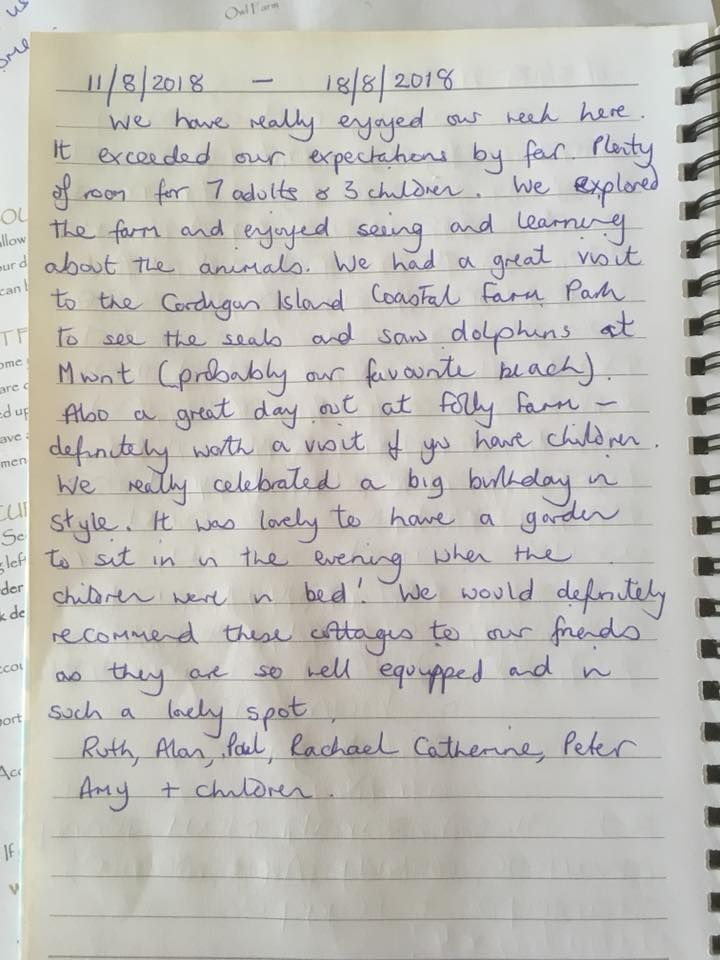 Owl Farm
11/8/2018 – 18/8/2018
We have really enjoyed our week here.
It exceeded our expectations by far. Plenty
of room for 7 adults & 3 children. We explored
the farm and enjoyed seeing and learning
about the animals. We had a great visit
to the Cardigan Island Coastal Farm Park
to see the seals and saw dolphins at
Mwnt (probably our favourite beach).
Also a great day out at Folly Farm –
definitely worth a visit if you have children.
We really celebrated a big birthday in
style. It was lovely to have a garden
to sit in in the evening when the
children were in bed! We would definitely
recommend these cottages to our friends
as they are so well equipped and in
such a lovely spot.
Ruth, Alan, Paul, Rachael Catherine, Peter
Amy + children.